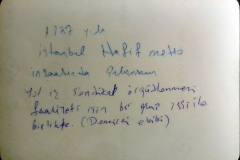 1987 yılı
istanbul Hafif metro
inşaatında çalışırken
Yol iş Sendikası örgütlenmesi
faaliyeti için bir grup işçi ile
birlikte. (Demirci ekibi)